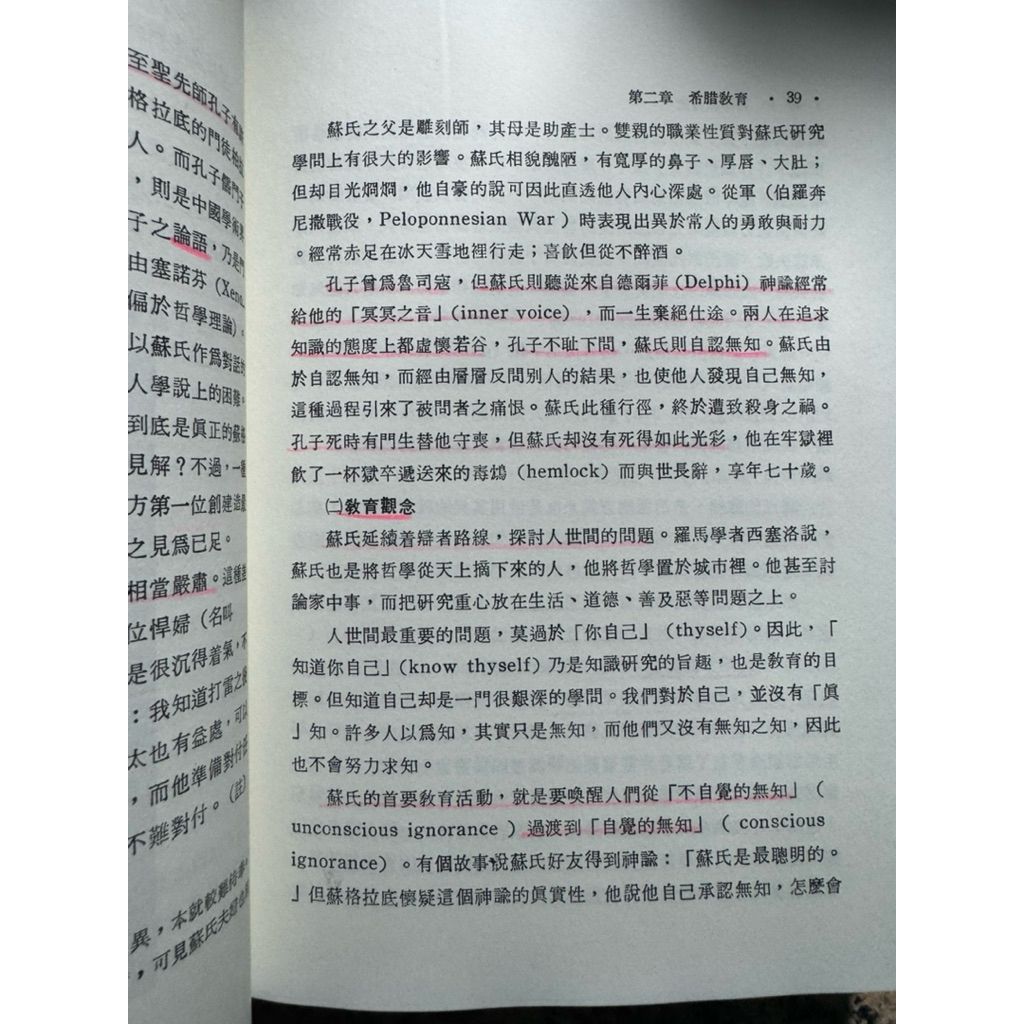 至聖先師孔子
格拉底的門徒柏拉
人。而孔子儒門子
，則是中國學術
子之論語，乃是門
由塞諾芬（Xeno
偏於哲學理論）。
以蘇氏作爲對話的
人學說上的困難。
到底是眞正的蘇格
見解？不過，一
方第一位創建造
之見爲已足。
相當嚴肅。這種
位悍婦（名叫
是很沉得着氣，不
：我知道打雷之後
太也有益處，可以
，而他準備對付
不難對付。（註）
異，本就較難待
，可見蘇氏夫
第二章　希腊敎育　・39・
蘇氏之父是雕刻師，其母是助產士。雙親的職業性質對蘇氏硏究
學問上有很大的影響。蘇氏相貌醜陋，有寬厚的鼻子、厚唇、大肚；
但却目光烱烱，他自豪的說可因此直透他人內心深處。從軍（伯羅奔
尼撒戰役，Peloponnesian War）時表現出異於常人的勇敢與耐力
。經常赤足在冰天雪地裡行走；喜飲但從不醉酒。
孔子曾爲魯司寇，但蘇氏則聽從來自德爾菲（Delphi）神諭經常
給他的「冥冥之音」（inner voice），而一生棄絕仕途。兩人在追求
知識的態度上都虛懷若谷，孔子不耻下問，蘇氏則自認無知。蘇氏由
於自認無知，而經由層層反問別人的結果，也使他人發現自己無知，
這種過程引來了被問者之痛恨。蘇氏此種行徑，終於遭致殺身之禍。
孔子死時有門生替他守喪，但蘇氏却沒有死得如此光彩，他在牢獄裡
飲了一杯獄卒遞送來的毒鴆（hemlock）而與世長辭，享年七十歲。
㈡敎育觀念
蘇氏延續着辯者路線，探討人世間的問題。羅馬學者西塞洛說，
蘇氏也是將哲學從天上摘下來的人，他將哲學置於城市裡。他甚至討
論家中事，而把硏究重心放在生活、道德、善及惡等問題之上。
人世間最重要的問題，莫過於「你自己」（thyself）。因此，「
知道你自己」（know thyself）乃是知識硏究的旨趣，也是敎育的目
標。但知道自己却是一門很艱深的學問。我們對於自己，並沒有「眞
」知。許多人以爲知，其實只是無知，而他們又沒有無知之知，因此
也不會努力求知。
蘇氏的首要敎育活動，就是要喚醒人們從「不自覺的無知」（
unconscious ignorance）過渡到「自覺的無知」（conscious
ignorance）。有個故事說蘇氏好友得到神諭：「蘇氏是最聰明的。
」但蘇格拉底懷疑這個神諭的眞實性，他說他自己承認無知，怎麼會